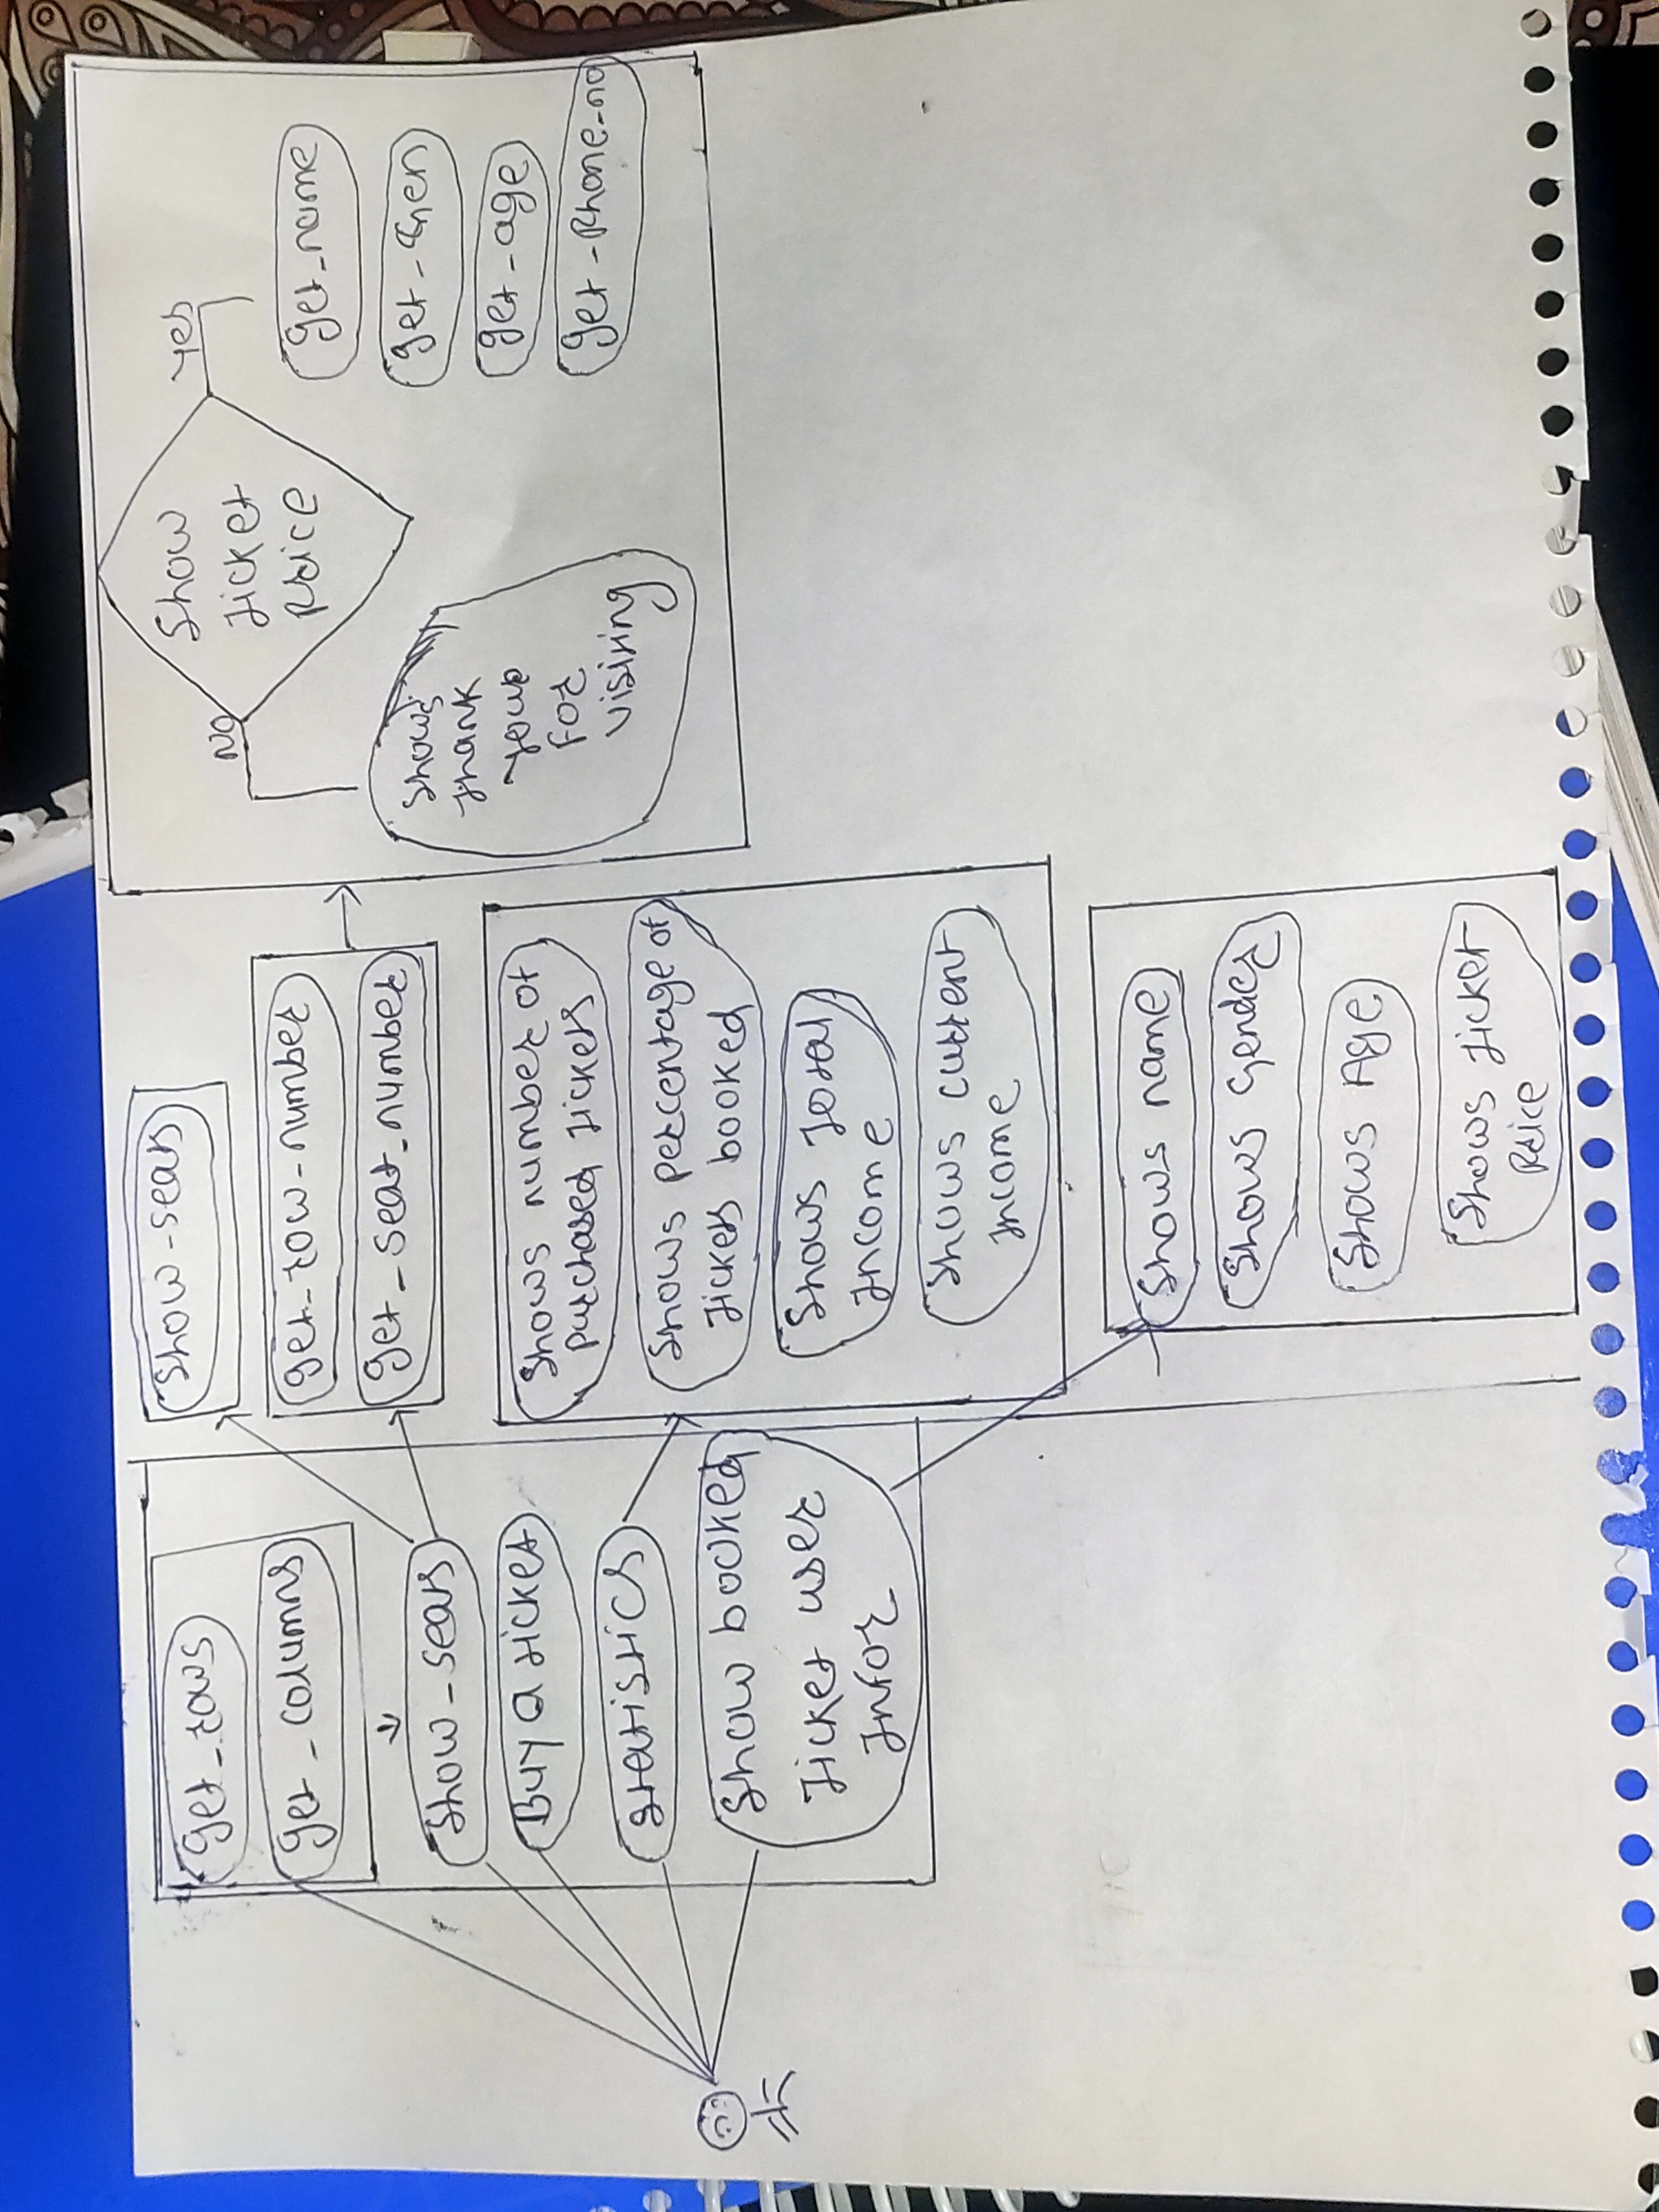 get_rows
get - columns
show - seats
Buy a ticket
statistics
Show booked
Ticket user
Infor
show - seats
get - row - number
get - seat_number
Shows number of
purchased tickets
Shows percentage of
tickets booked
Shows Total
Income
Shows current
Income
Shows name
Shows Gender
Shows Age
Shows ticket
Price
Show
ticket
Price
No
Yes
Shows
thank
you
for
visiting
get_name
get - Gen
get - age
get - Phone_no